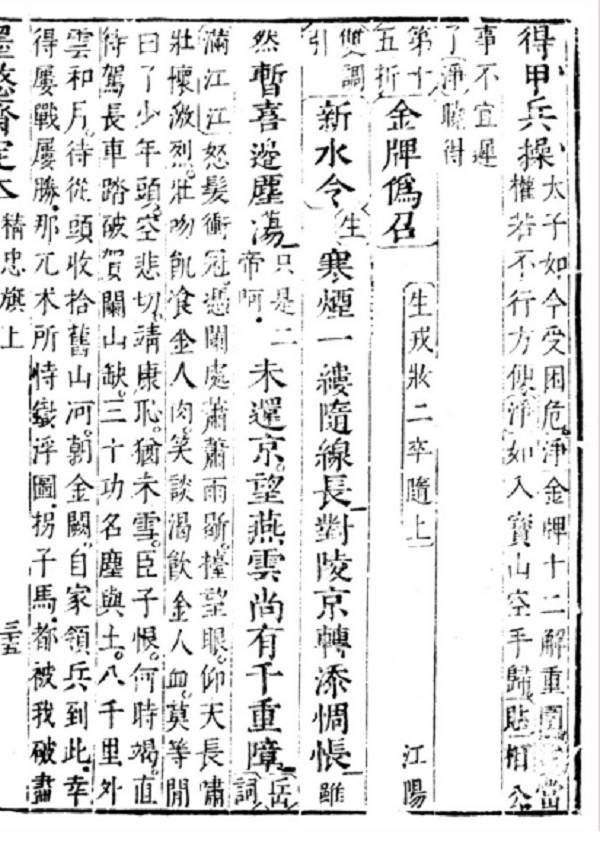 得甲兵操
太子如今受困危。淨金牌十二解重圍。當
權若不行方便。淨如入寶山空手歸。貼相公
事不宜遲
了淨曉得
第十
五折
金牌偽召 生戎妝二卒隨上 江陽
雙調
引
新水令 生 寒煙一縷隨線長。對陵京轉添惆悵。雖
然暫喜邊塵蕩。只是二
帝呵。
未還京。望燕雲尚有千重障。岳
詞
滿江江怒髮衝冠。憑闌處蕭蕭雨歇。擡望眼。仰天長嘯
壯懷激烈。壯吻飢飡金人肉。笑談渴飲金人血。莫等閒
白了少年頭。空悲切。靖康恥。猶未雪。臣子恨。何時竭。直
待駕長車踏破賀闌山缺。三十功名塵與土。八千里外
雲和月。待從頭收拾舊山河。朝金闕。自家領兵到此。幸
得屢戰屢勝。那兀术所恃鐵浮圖。拐子馬。都被我破盡
墨憨齋定本 精忠旗上 三十五